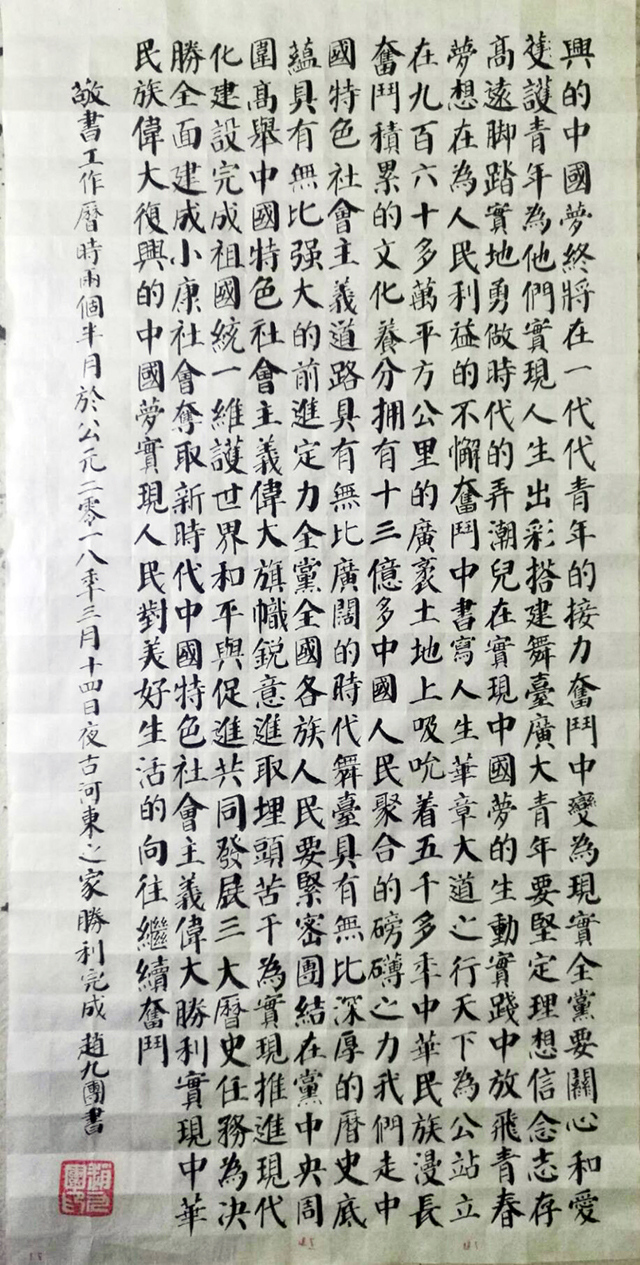 興的中國夢終將在一代代青年的接力奮鬥中變為現實全黨要關心和愛
護青年為他們實現人生出彩搭建舞臺廣大青年要堅定理想信念志存
高遠脚踏實地勇做時代的弄潮兒在實現中國夢的生動實踐中放飛青春
夢想在為人民利益的不懈奮鬥中書寫人生華章大道之行天下為公站立
在九百六十多萬平方公里的廣袤土地上吸吮着五千多年中華民族漫長
奮鬥積累的文化養分擁有十三億多中國人民聚合的磅礴之力我們走中
國特色社會主義道路具有無比廣闊的時代舞臺具有無比深厚的曆史底
蘊具有無比强大的前進定力全黨全國各族人民要緊密團結在黨中央周
圍高舉中國特色社會主義偉大旗幟鋭意進取埋頭苦干為實現推進現代
化建設完成祖國統一維護世界和平與促進共同發展三大曆史任務為决
勝全面建成小康社會奪取新時代中國特色社會主義偉大勝利實現中華
民族偉大復興的中國夢實現人民對美好生活的向往繼續奮鬥
敬書工作曆時兩個半月於公元二零一八年三月十四日夜古河東之家勝利完成 趙九團書